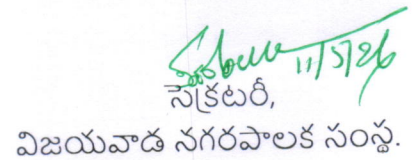 11/5/26
సెక్రటరీ,
విజయవాడ నగరపాలక సంస్థ.